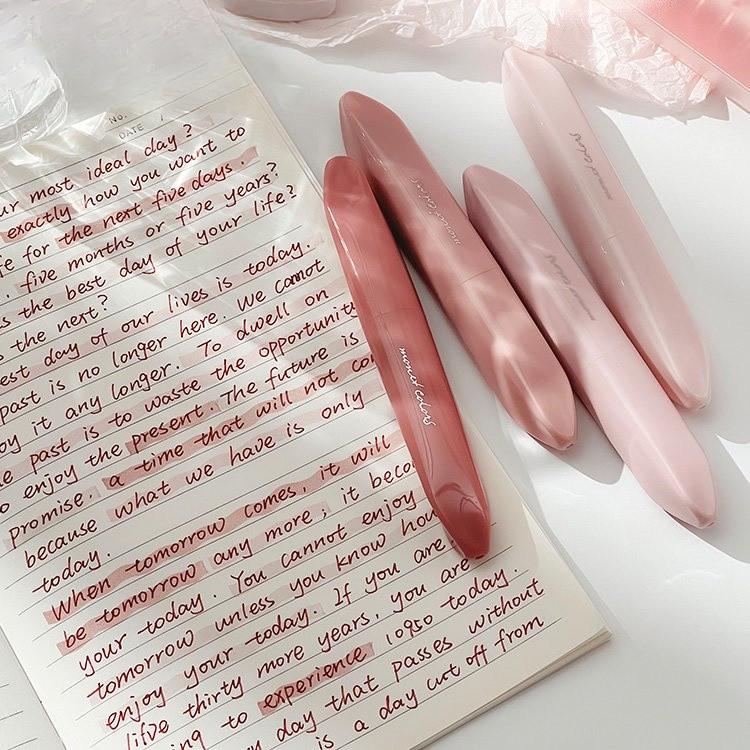 No.
DATE
ur most ideal day?
exactly how you want to
fe for the next five days.
, five months or five years?
s the best day of your life?
the next?
est day of our lives is today.
past is no longer here. We cannot
oy it any longer. To dwell on
e past is to waste the opportunity
o enjoy the present. The future is
promise, a time that will not co
because what we have is only
today.
When tomorrow comes, it will
be tomorrow any more; it beco
your today. You cannot enjoy
tomorrow unless you know how
enjoy your today. If you are
lifve thirty more years, you are
ing to experience 10950 today.
y day that passes without
is a day cut off from
moned colors
moned colors
moned colors
moned colors